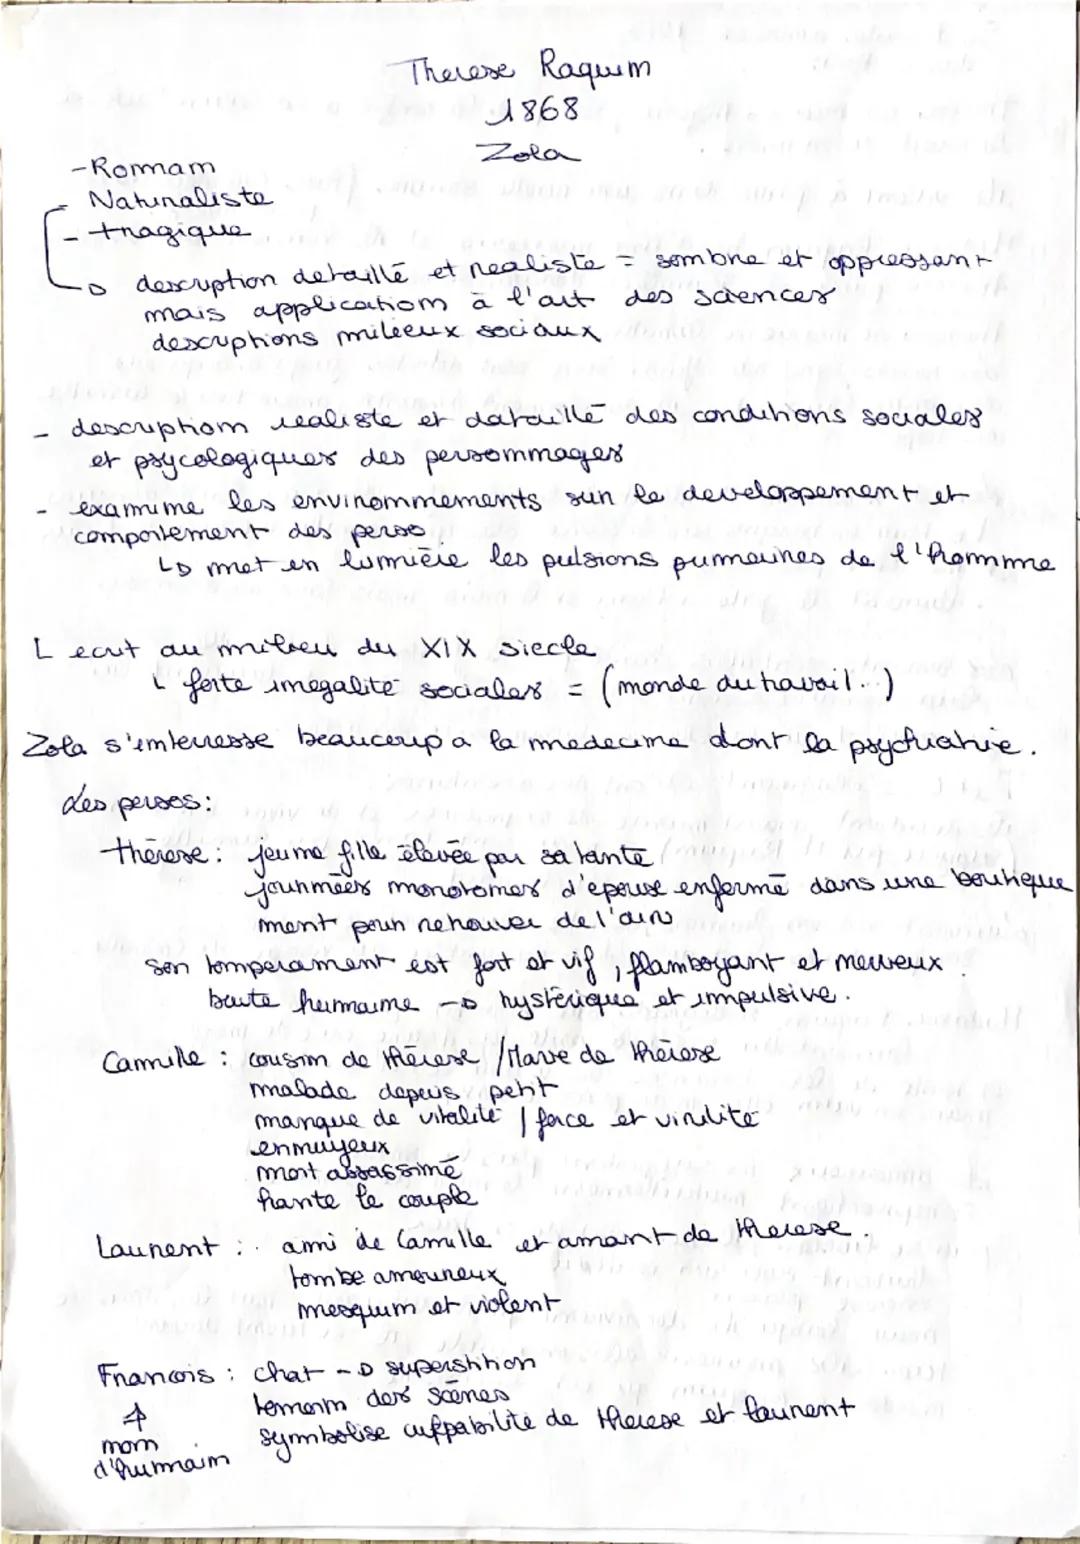 Therese Raquin
1868
Zola
- Roman
- Naturaliste
- tragique
↳ description detaillé et realiste = sombre et oppressant
mais application à l'art des sciences
descriptions milieux sociaux
- description realiste et dataillé des conditions sociales
et psycologiques des personnages
- examine les environnements sur le developpement et
comportement des perso
↳ met en lumière les pulsions purmaines de l'homme
L ecrit au milieu du XIX siecle
L forte inegalité sociales = (monde du travail...)
Zola s'interresse beaucoup a la medecine dont la psychiatrie.
Les persos:
thérèse : jeune fille élevée par sa tante
journnées monotones d'epouse enfermé dans une boutique
ment pour retrouver de l'air
son temperament est fort et vif, flamboyant et nerveux
brute humaine → hystérique et impulsive.
Camille : cousin de thérese / Marie de thérèse
malade depuis petit
manque de vitalité / force et virilité
ennuyeux
mort assassiné
hante le couple
Laurent : ami de Camille et amant de therese.
tombe amoureux
mesquin et violent
Francois : chat → superstition
↑ temoin des scènes
nom symbolise culpabilité de therese et laurent
d'humain